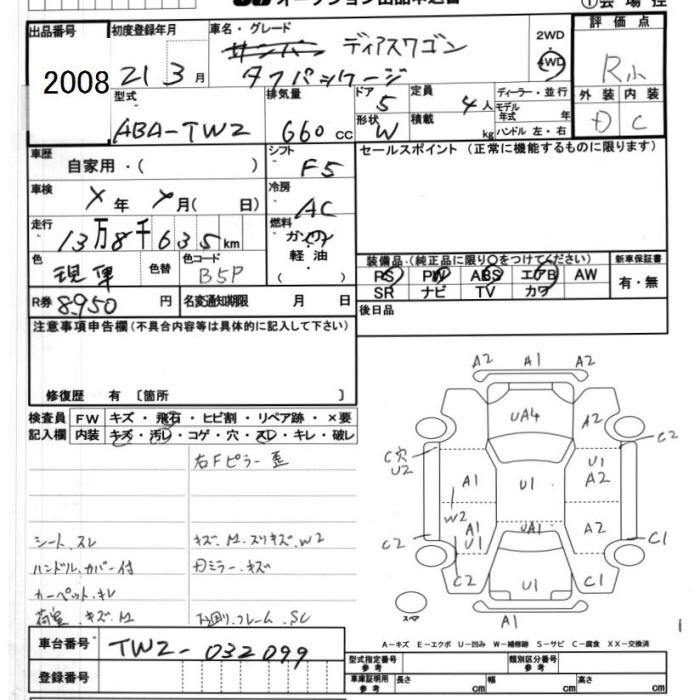 オークション出品申込書
出品番号
2008
初度登録年月
21 3 月
車名・グレード
サンバー ディアスワゴン
タフパッケージ
2WD
・
4WD
評価点
R小
型式
ABA-TW2
排気量
660 cc
ドア
5
形状
W
定員
4人
積載
kg
ディーラー・並行
モデル
年式 年
ハンドル 左・右
外装 内装
D C
車歴
自家用・( )
シフト
F5
セールスポイント (正常に機能するものに限ります)
車検
年 月( 日)
冷房
AC
走行
13万8千635km
燃料
軽油
( )
色
色替
色コード
B5P
装備品(純正品に限り○をつけてください)
PS PW ABS エアB AW
SR ナビ TV カワ
新車保証書
有・無
R券 8,950 円
名変通知期限 月 日
後日品
注意事項申告欄(不具合内容等は具体的に記入して下さい)
修復歴 有 〔箇所 〕
検査員
記入欄
FW キズ・飛石・ヒビ割・リペア跡・×要
内装 キズ・汚レ・コゲ・穴・スレ・キレ・破レ
右Fピラー歪
シート、スレ
ハンドル、カバー付
カーペット、キレ
荷室、キズ、M
キズ、M、スリキズ、W2
Dミラー、キズ
下回り、フレーム、SC
A2 A1 A2
UA4 A2
C穴 U2
C2
A1 U1 U1 A2
W2 A1 UA1 A2
U1
C2 C1
C2 U1 C1
A1
スペア
A-キズ E-エクボ U-凹み W-補修跡 S-サビ C-腐食 XX-交換済
車台番号
TW2-032099
登録番号
型式指定番号
参考
類別区分番号
参考
車庫証明用
参考
長さ cm 幅 cm 高さ cm